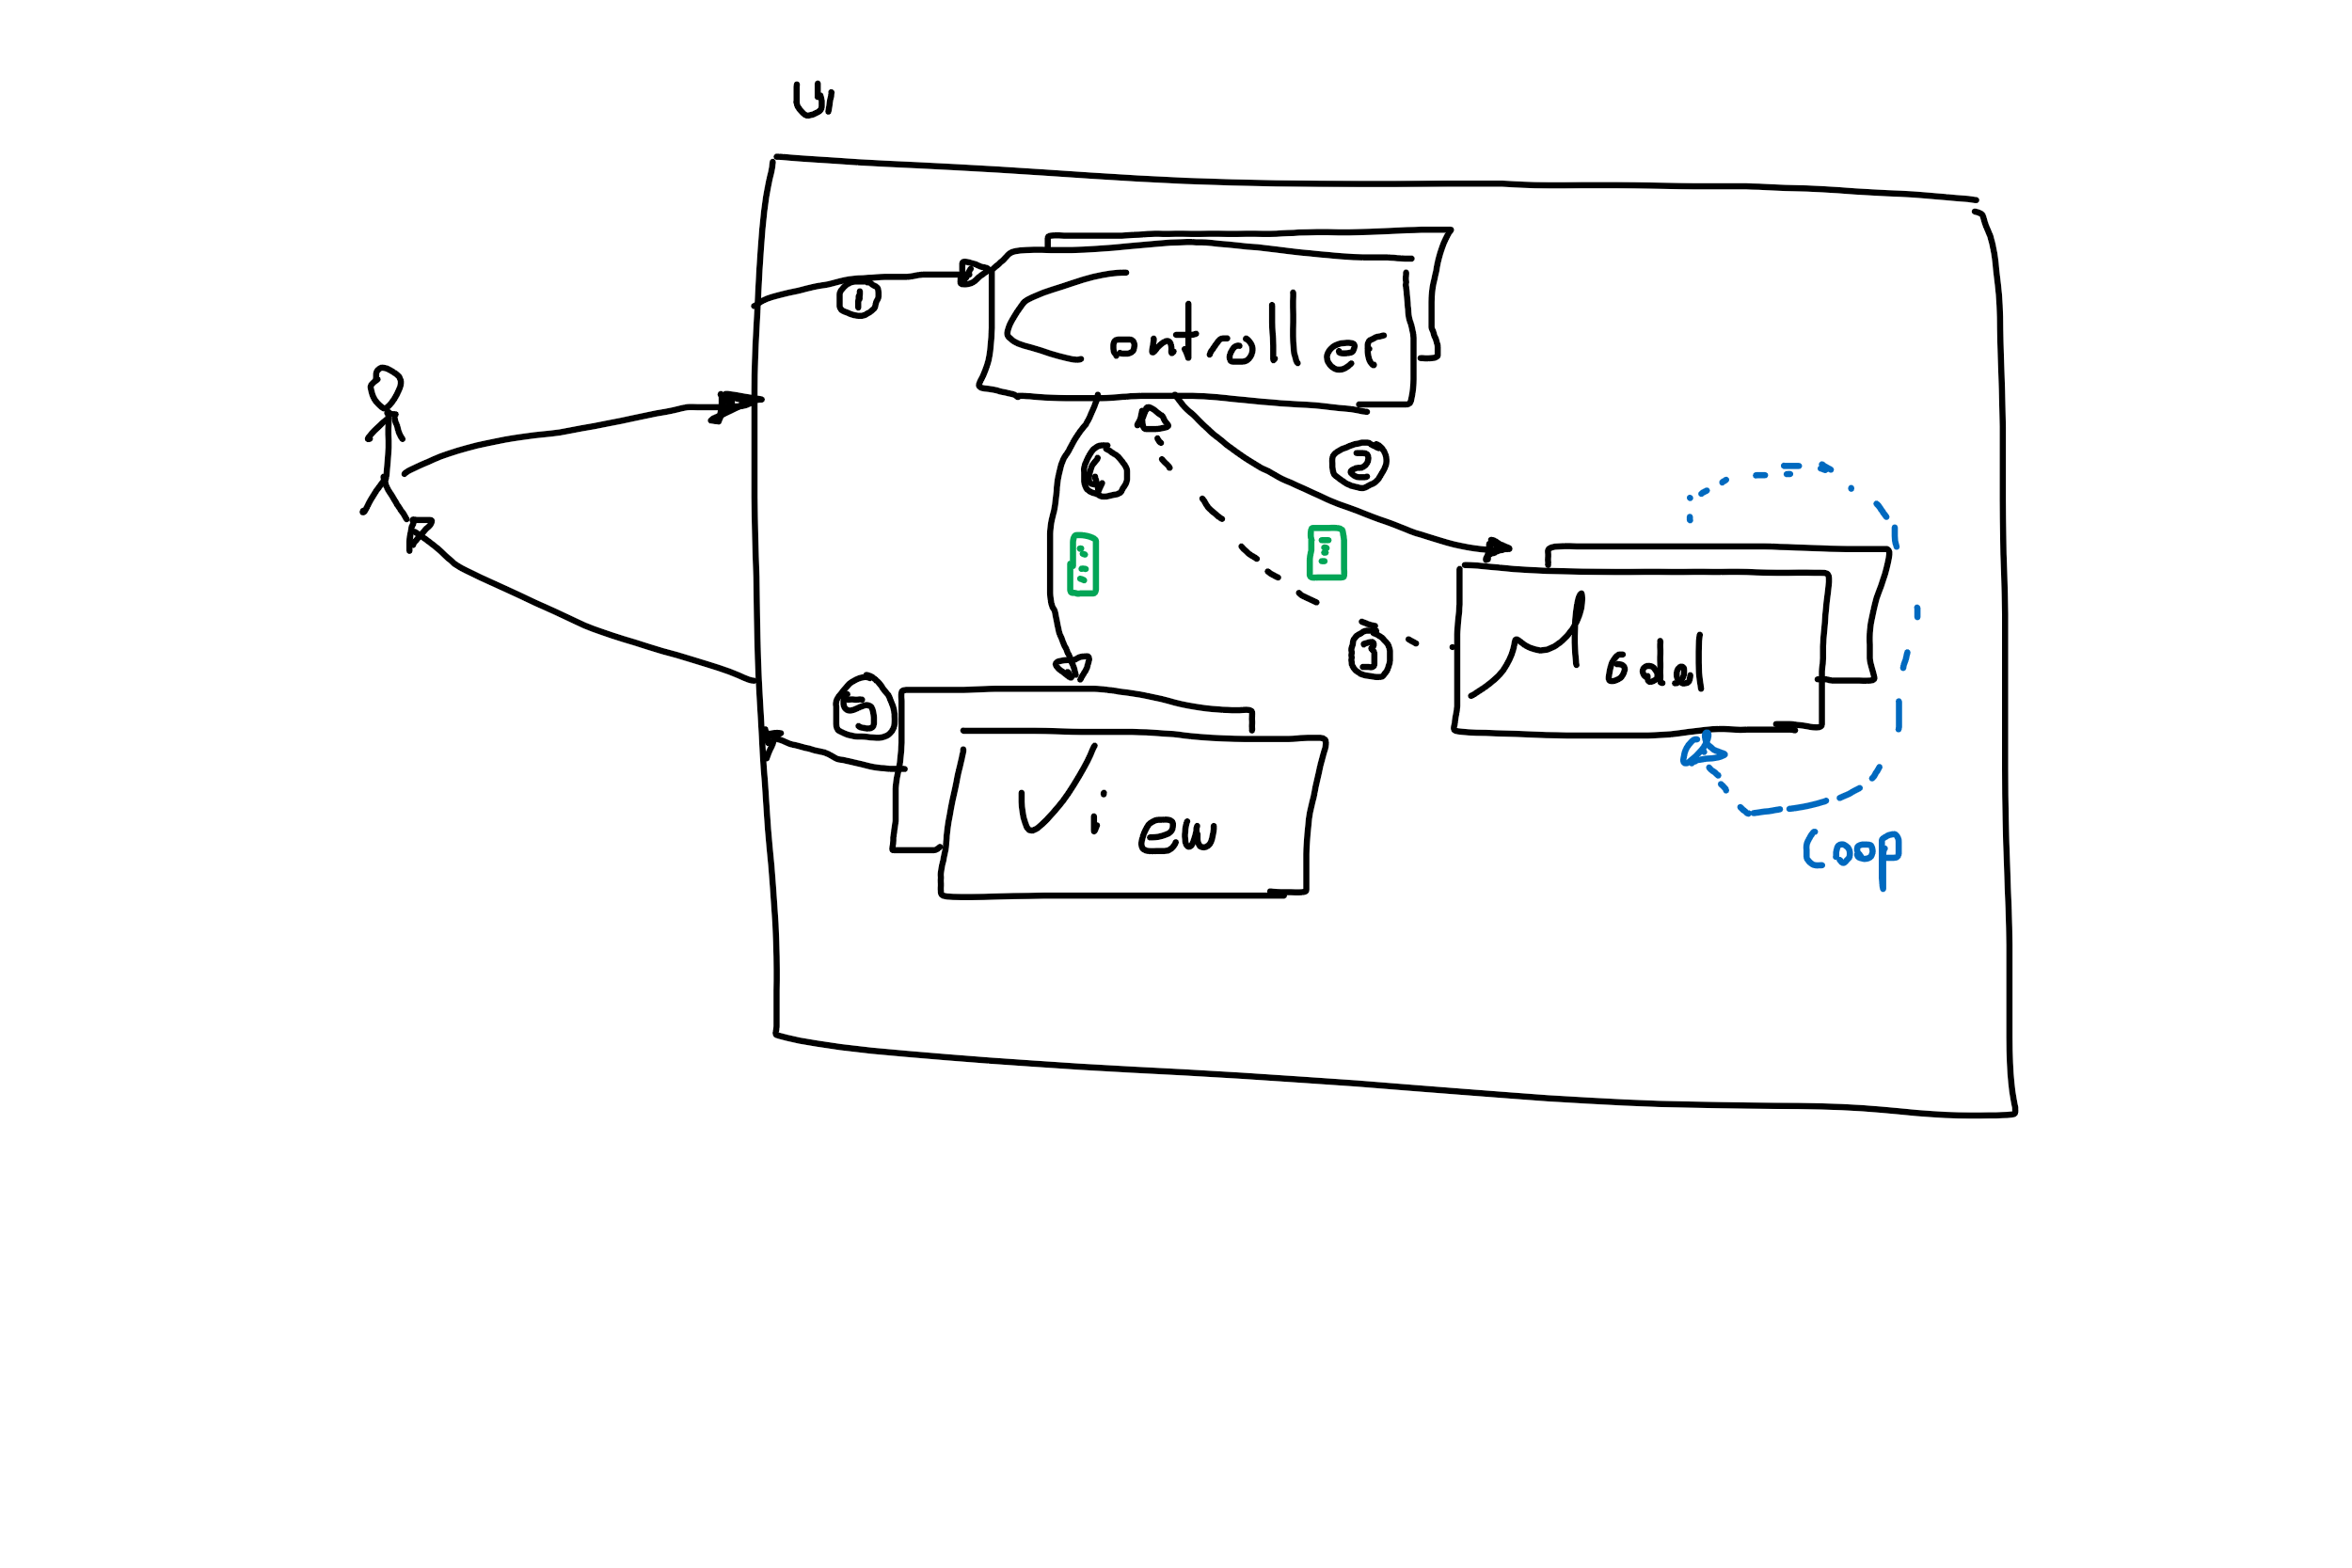 UI
1
Controller
4
2
3
Model
5
View
Coop